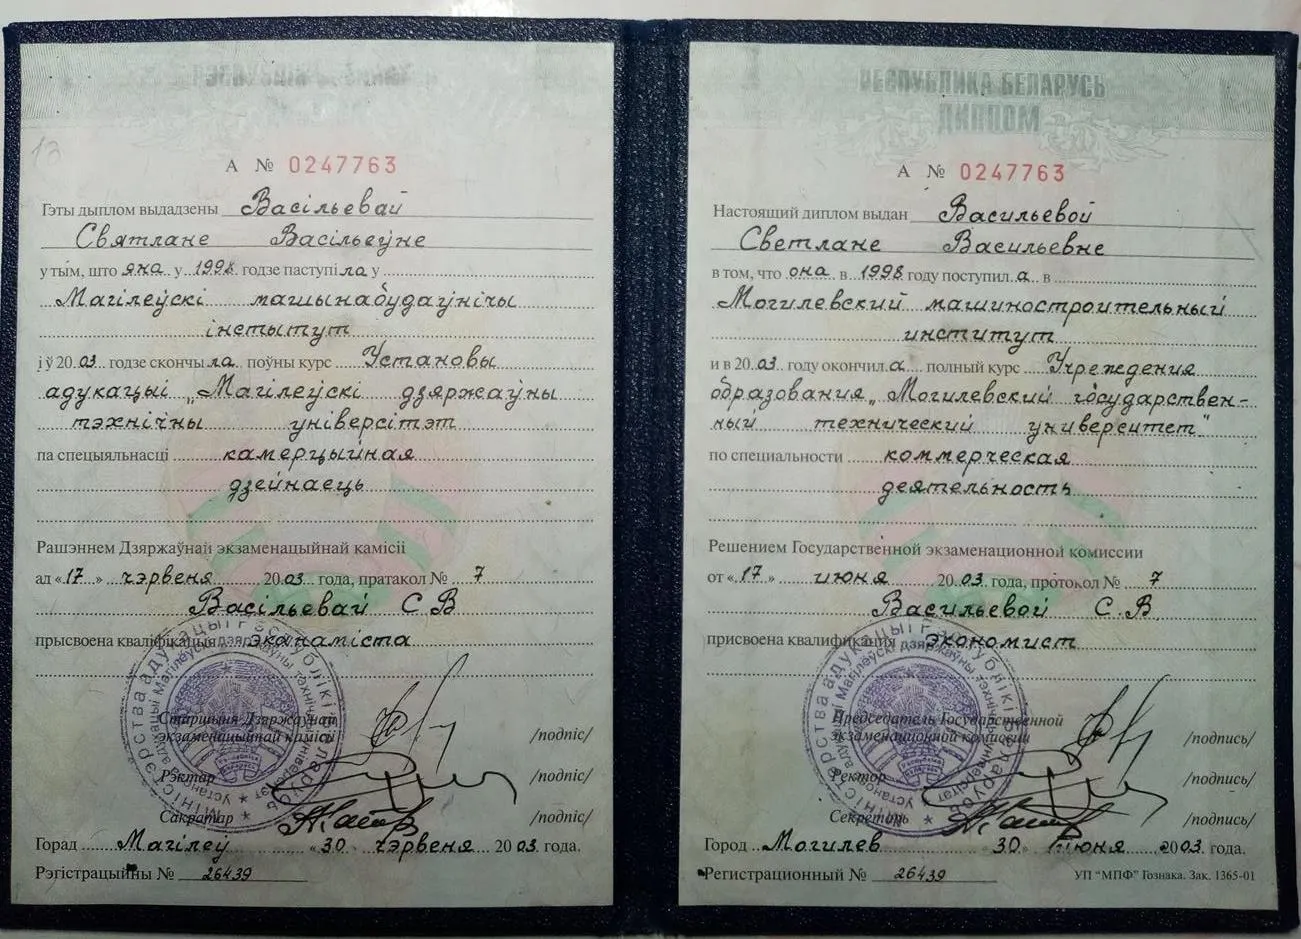 А № 0247763
Гэты дыплом выдадзены Васільевай
Святлане Васільеўне
у тым, што яна у 1998 годзе паступіла у
Магілеўскі машынабудаўнічы
інстытут
і ў 2003 годзе скончыла поўны курс Установы
адукацыі „Магілеўскі дзяржаўны
тэхнічны універсітэт
па спецыяльнасці камерцыйная
дзейнаець
Рашэннем Дзяржаўнай экзаменацыйнай камісіі
ад «17» чэрвеня 2003 года, пратакол № 7
Васільевай С.В
прысвоена кваліфікацыя эканаміста
Старшыня Дзяржаўнай
экзаменацыйнай камісіі /подпіс/
Рэктар /подпіс/
Сакратар /подпіс/
Горад Магілеў «30» чэрвеня 2003 года.
Рэгістрацыйны № 26439
РЕСПУБЛИКА БЕЛАРУСЬ
ДИПЛОМ
А № 0247763
Настоящий диплом выдан Васильевой
Светлане Васильевне
в том, что она в 1998 году поступила в
Могилевский машиностроительный
институт
и в 2003 году окончила полный курс Учреждения
образования „Могилевский государствен-
ный технический университет"
по специальности коммерческая
деятельность
Решением Государственной экзаменационной комиссии
от «17» июня 2003 года, протокол № 7
Васильевой С.В.
присвоена квалификация экономист
Председатель Государственной
экзаменационной комиссии /подпись/
Ректор /подпись/
Секретарь /подпись/
Город Могилев «30» июня 2003 года.
Регистрационный № 26439
УП "МПФ" Гознака. Зак. 1365-01